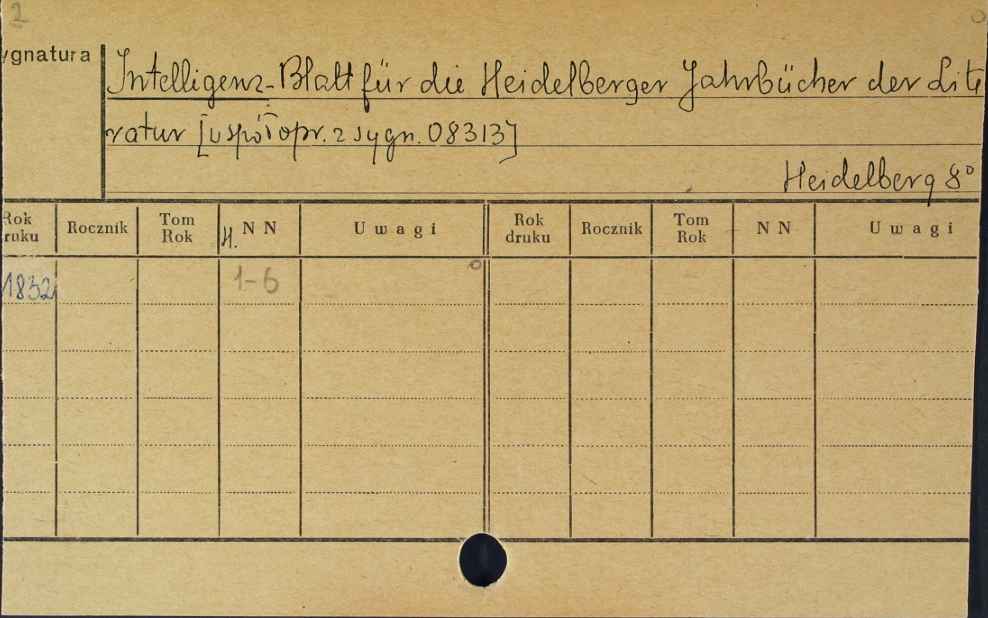 2
ygnatura
Intelligenz-Blatt für die Heidelberger Jahrbücher der Lite
ratur [współopr. z sygn. 08313]
Heidelberg 8°
Rok druku Rocznik Tom Rok H. NN Uwagi Rok druku Rocznik Tom Rok NN Uwagi
1832 1-6